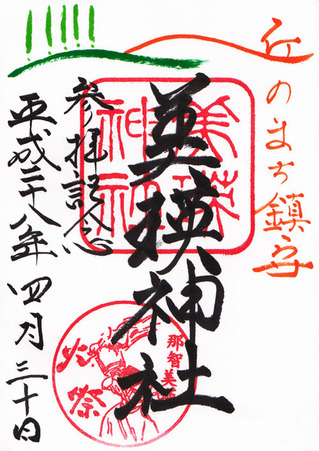 丘のまち鎮守
美瑛神社
美瑛
神社
那智美瑛
火祭
参拝記念
平成二十八年四月三十日